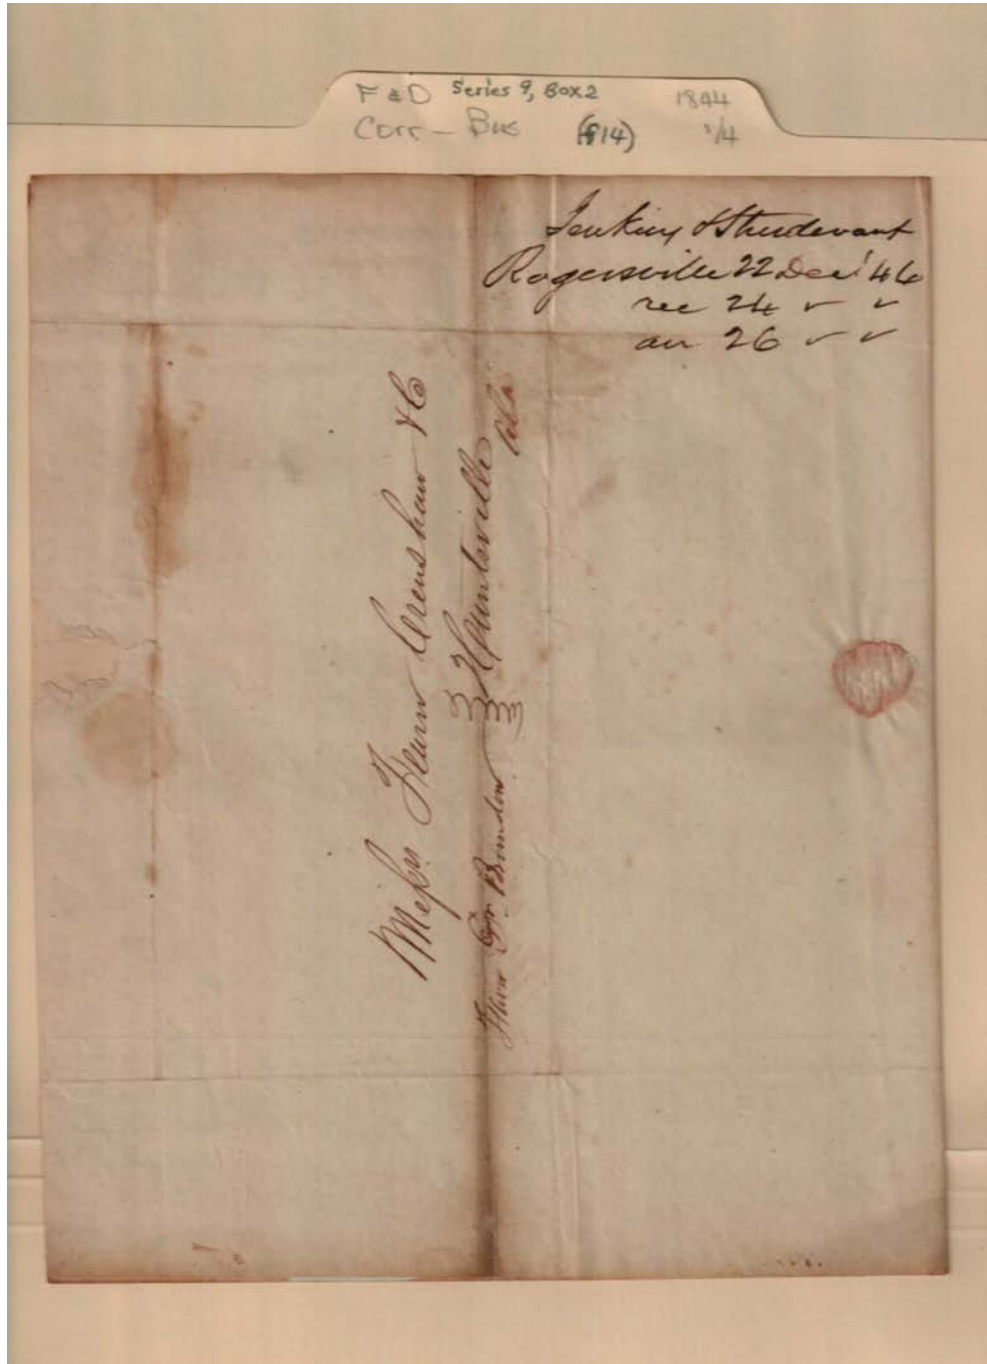 F & D Series 9, Box 2 1844
Corr - Bus (f14) 1/4
Jenkins & Sturdevant
Rogersville 22 Dec' 44
rec 24 " "
an 26 " "
Messrs Fearn Crenshaw & Co
Huntsville
Ala
Brandon